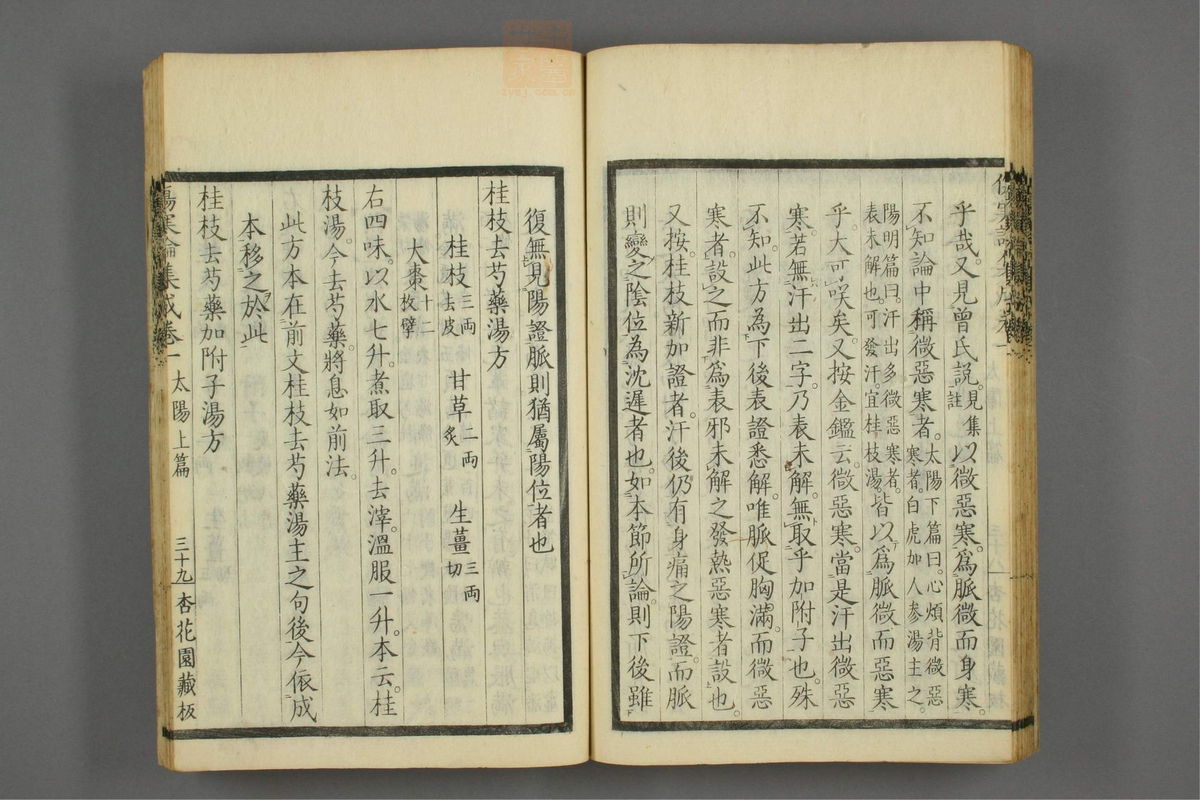 乎哉。又見曾氏說。見集註以微惡寒。爲脈微而身寒。
不知論中稱微惡寒者。太陽下篇曰。心煩背微惡寒者。白虎加人參湯主之。
陽明篇曰。汗出多微惡寒者。表未解也。可發汗。宜桂枝湯。皆以爲脈微而惡寒
乎。大可咲矣。又按金鑑云。微惡寒。當是汗出微惡
寒。若無汗出二字。乃表未解。無取乎加附子也。殊
不知。此方為下後表證悉解。唯脈促胸滿。而微惡
寒者。設之。而非爲表邪未解之發熱惡寒者設也。
又按。桂枝新加證者。汗後仍有身痛之陽證。而脈
則變之陰位。為沈遲者也。如本節所論。則下後雖
復無見陽證脈則猶屬陽位者也
桂枝去芍藥湯方
桂枝三両去皮 甘草二両炙 生薑三両切
大棗十二枚擘
右四味。以水七升。煮取三升。去滓。溫服一升。本云。桂
枝湯。今去芍藥。將息如前法。
此方本在前文桂枝去芍藥湯主之句後今依成
本移之於此
桂枝去芍藥加附子湯方
傷寒論集成卷一 太陽上篇 三十九 杏花園藏板